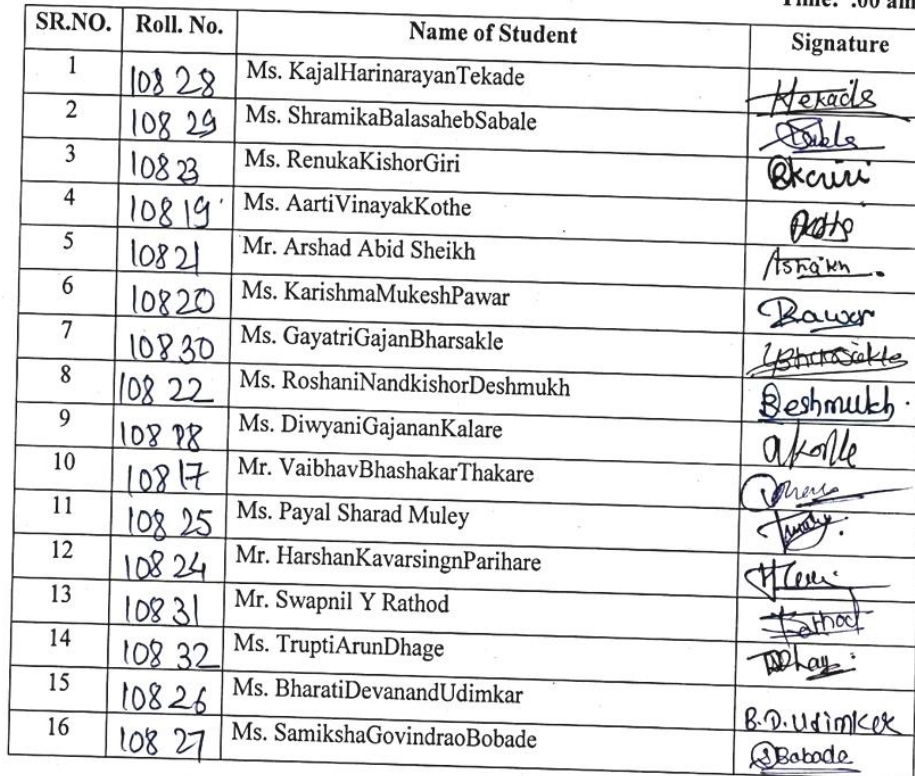 Time: :00 am
SR.NO. Roll. No. Name of Student Signature
1 10828 Ms. KajalHarinarayanTekade Hekade
2 10829 Ms. ShramikaBalasahebSabale Sable
3 10823 Ms. RenukaKishorGiri
4 10819 Ms. AartiVinayakKothe
5 10821 Mr. Arshad Abid Sheikh
6 10820 Ms. KarishmaMukeshPawar Pawar
7 10830 Ms. GayatriGajanBharsakle
8 10822 Ms. RoshaniNandkishorDeshmukh Deshmukh.
9 Ms. DiwyaniGajananKalare
10 10817 Mr. VaibhavBhashakarThakare
11 10825 Ms. Payal Sharad Muley
12 10824 Mr. HarshanKavarsingnParihare
13 10831 Mr. Swapnil Y Rathod Rathod
14 10832 Ms. TruptiArunDhage
15 10826 Ms. BharatiDevanandUdimkar B.D.Udimkar
16 10827 Ms. SamikshaGovindraoBobade SBobade